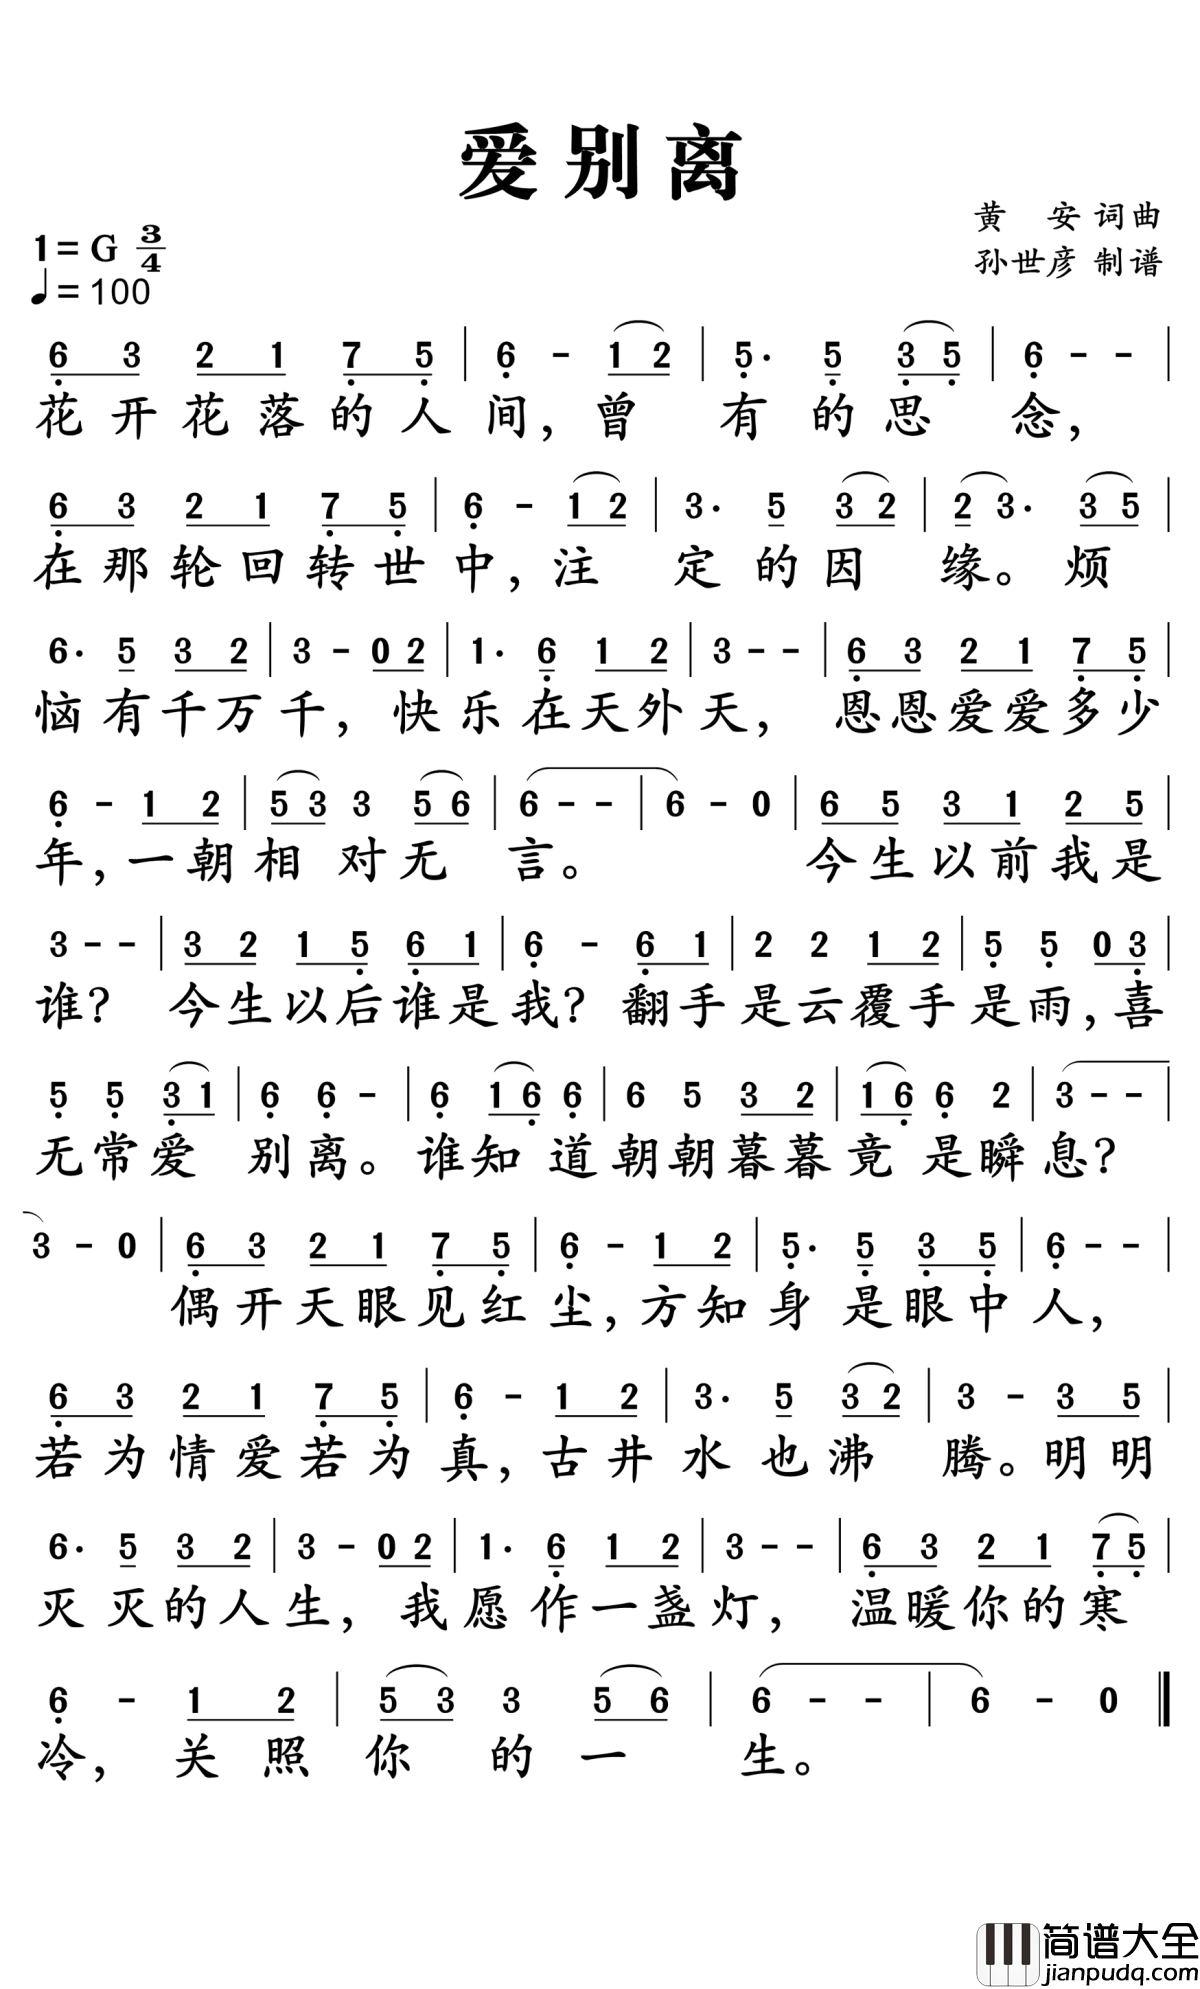 爱别离
黄 安 词曲
孙世彦 制谱
1=G 3/4
♩=100
6̣ 3 2 1 7̣ 5̣ | 6̣ - 1 2 | 5̣· 5̣ 3̣ 5̣ | 6̣ - - |
花开花落的人间，曾有的思念，
6̣ 3 2 1 7̣ 5̣ | 6̣ - 1 2 | 3· 5 3 2 | 2 3· 3 5 |
在那轮回转世中，注定的因缘。烦
6· 5 3 2 | 3 - 0 2 | 1· 6̣ 1 2 | 3 - - | 6̣ 3 2 1 7̣ 5̣ |
恼有千万千，快乐在天外天，恩恩爱爱多少
6̣ - 1 2 | 5 3 3 5 6 | 6 - - | 6 - 0 | 6 5 3 1 2 5 |
年，一朝相对无言。今生以前我是
3 - - | 3 2 1 5̣ 6̣ 1 | 6̣ - 6̣ 1 | 2 2 1 2 | 5̣ 5̣ 0 3̣ |
谁？今生以后谁是我？翻手是云覆手是雨，喜
5̣ 5̣ 3̣ 1 | 6̣ 6̣ - | 6̣ 1 6̣ 6̣ | 6 5 3 2 | 1 6̣ 6̣ 2 | 3 - - |
无常爱别离。谁知道朝朝暮暮竟是瞬息？
3 - 0 | 6̣ 3 2 1 7̣ 5̣ | 6̣ - 1 2 | 5̣· 5̣ 3̣ 5̣ | 6̣ - - |
偶开天眼见红尘，方知身是眼中人，
6̣ 3 2 1 7̣ 5̣ | 6̣ - 1 2 | 3· 5 3 2 | 3 - 3 5 |
若为情爱若为真，古井水也沸腾。明明
6· 5 3 2 | 3 - 0 2 | 1· 6̣ 1 2 | 3 - - | 6̣ 3 2 1 7̣ 5̣ |
灭灭的人生，我愿作一盏灯，温暖你的寒
6̣ - 1 2 | 5 3 3 5 6 | 6 - - | 6 - 0 ‖
冷，关照你的一生。
简谱大全
jianpudq.com